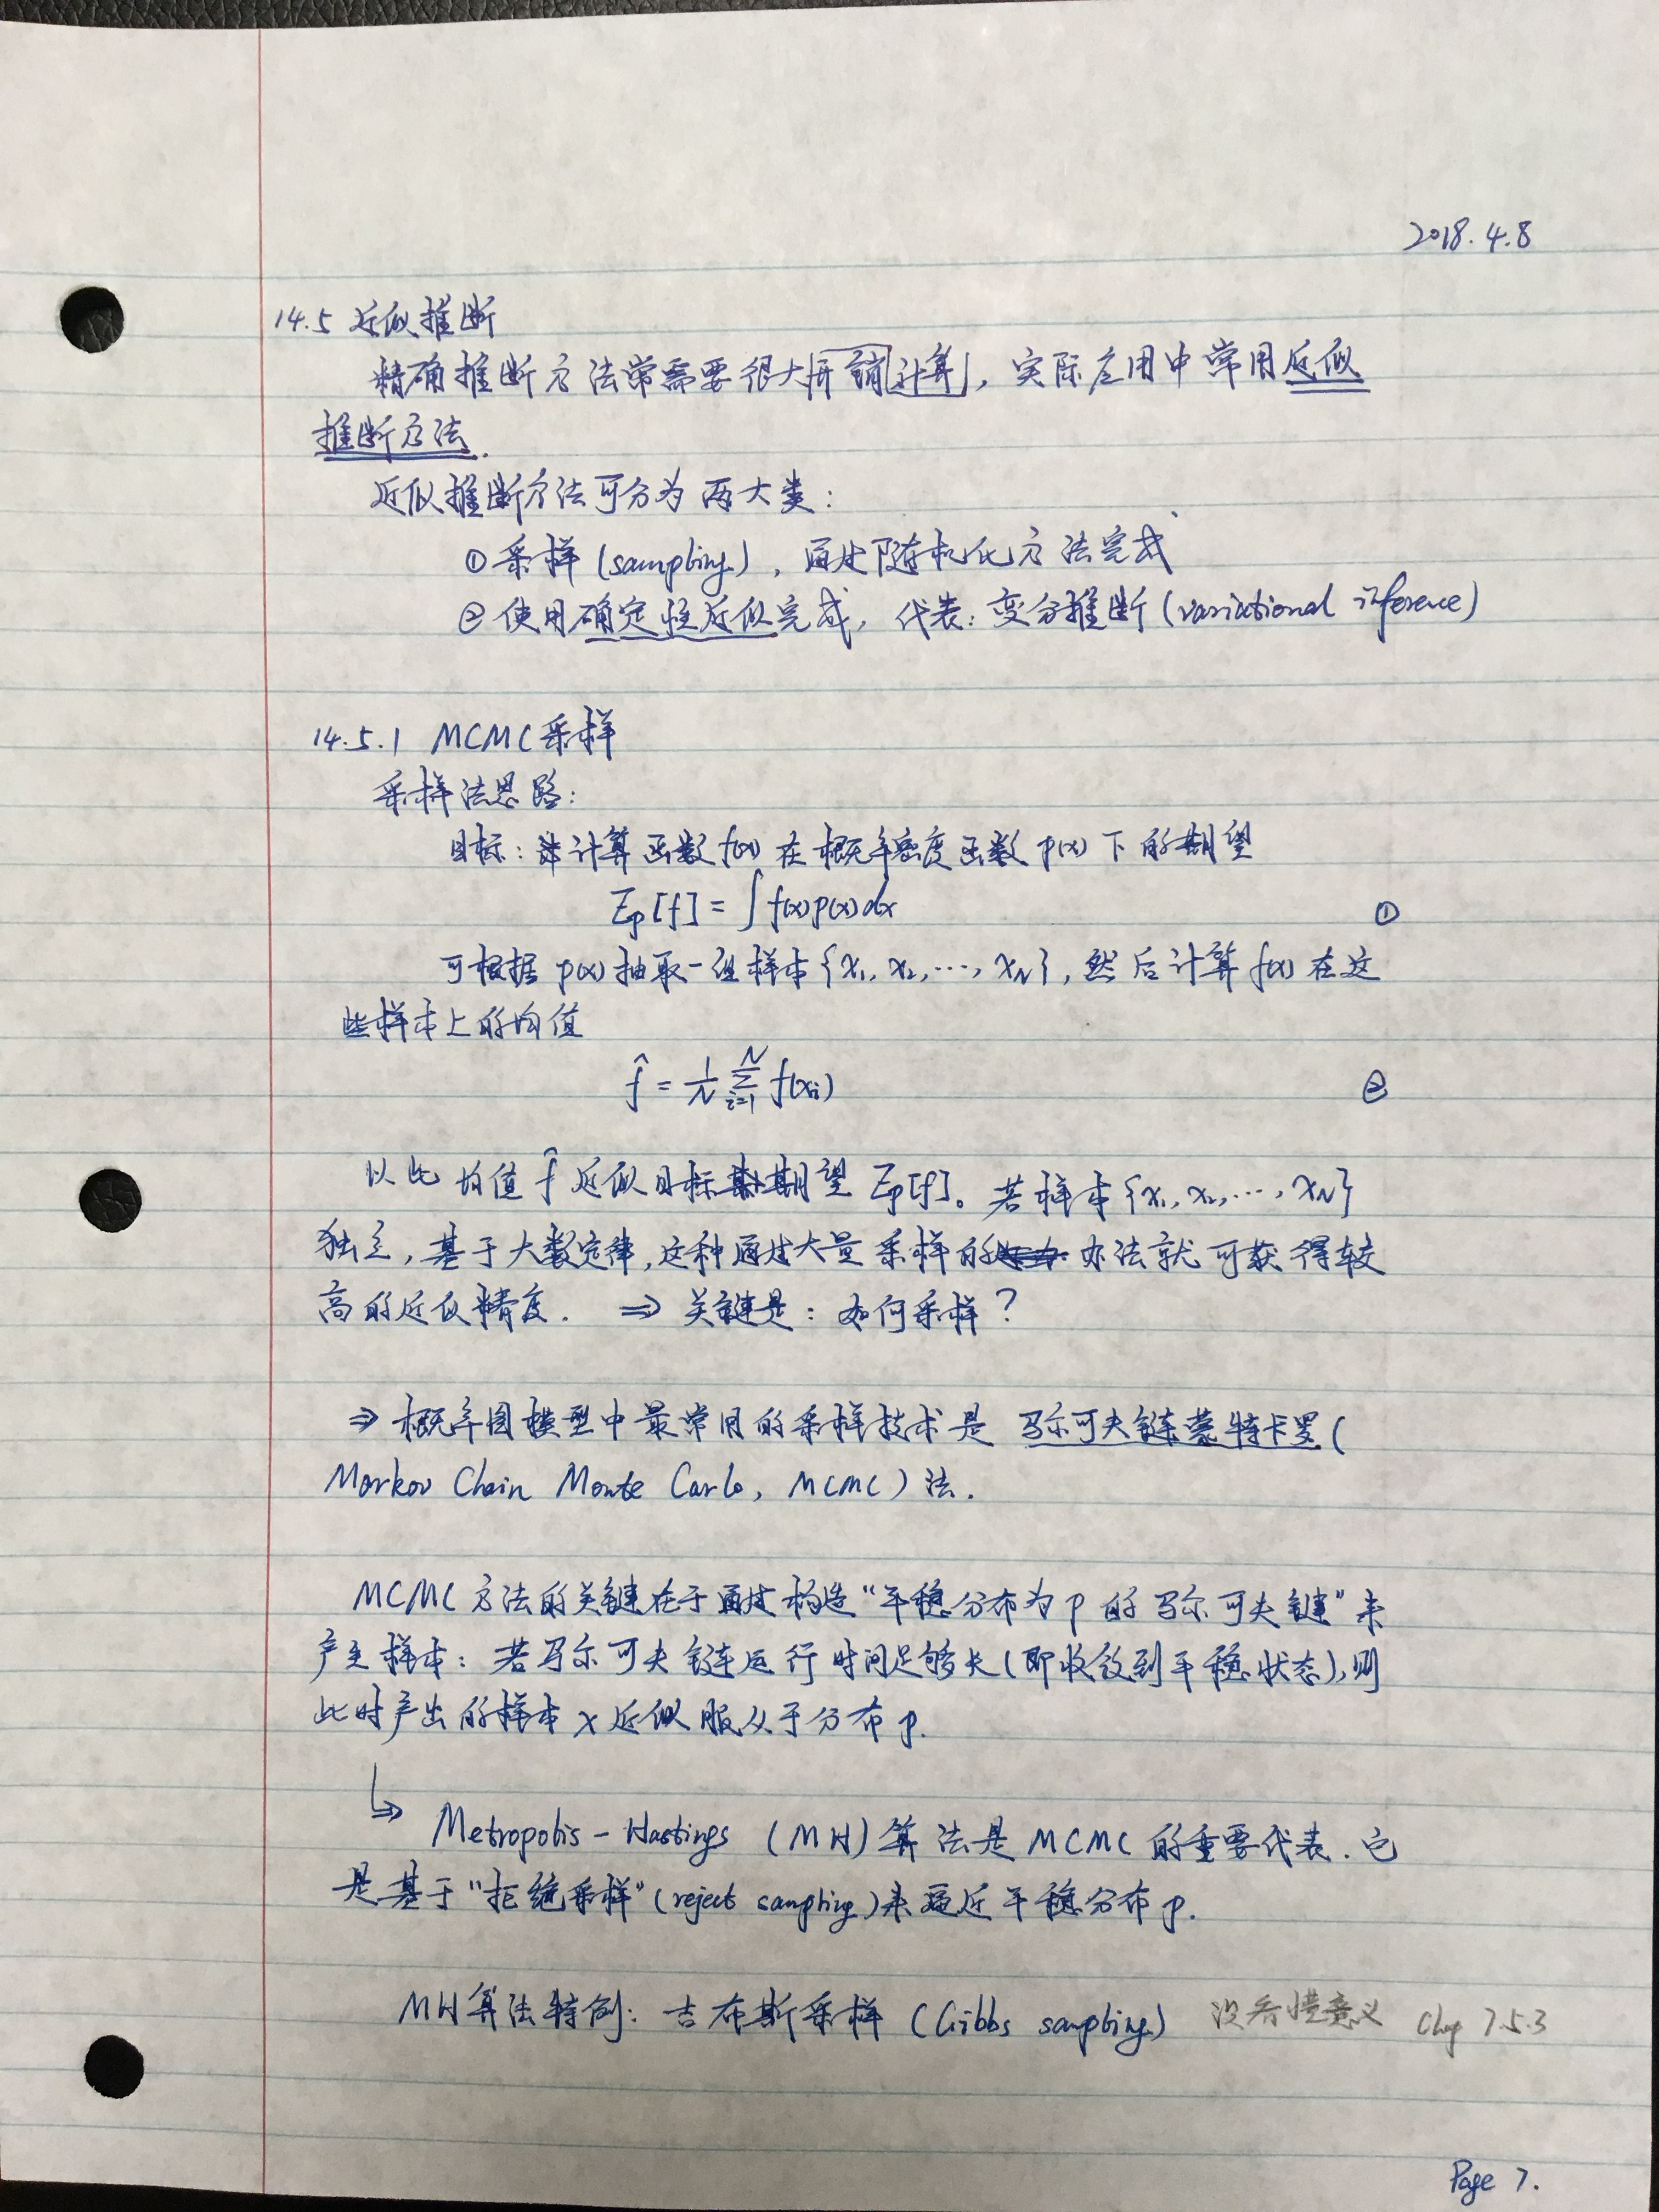 2018.4.8
14.5 近似推断
精确推断方法常需要很大开销计算，实际应用中常用近似
推断方法.
近似推断方法可分为两大类：
① 采样 (sampling)，通过随机化方法完成
② 使用确定性近似完成，代表：变分推断 (variational inference)
14.5.1 MCMC 采样
采样法思路：
目标：计算函数 f(x) 在概率密度函数 p(x) 下的期望
Ep[f] = ∫ f(x)p(x)dx ①
可根据 p(x) 抽取一组样本 {x₁, x₂, ..., x_N}，然后计算 f(x) 在这
些样本上的均值
f̂ = 1/N Σ_{i=1}^{N} f(xᵢ) ②
以此均值 f̂ 近似目标期望 Ep[f]。若样本 {x₁, x₂, ..., x_N}
独立，基于大数定律，这种通过大量采样的办法就可获得较
高的近似精度. ⇒ 关键是：如何采样？
⇒ 概率图模型中最常用的采样技术是 马尔可夫链蒙特卡罗 (
Markov Chain Monte Carlo, MCMC) 法.
MCMC 方法的关键在于通过构造“平稳分布为 p 的马尔可夫链”来
产生样本：若马尔可夫链运行时间足够长 (即收敛到平稳状态)，则
此时产出的样本 x 近似服从于分布 p.
↳ Metropolis-Hastings (MH) 算法是 MCMC 的重要代表. 它
是基于“拒绝采样” (reject sampling) 来逼近平稳分布 p.
MH算法特例：吉布斯采样 (Gibbs sampling) 没看懂意义 Chap 7.5.3
Page 7.